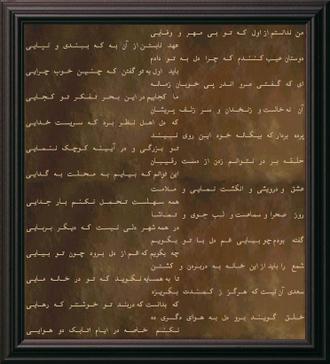 من ندانستم از اول که تو بی مهر و وفایی
عهد نابستن از آن به که ببندی و نپایی
دوستان عیب کنندم که چرا دل به تو دادم
باید اول به تو گفتن که چنین خوب چرایی
ای که گفتی مرو اندر پی خوبان زمانه
ما کجاییم در این بحر تفکر تو کجایی
آن نه خالست و زنخدان و سر زلف پریشان
که دل اهل نظر برد که سریست خدایی
پرده بردار که بیگانه خود این روی نبیند
تو بزرگی و در آیینه کوچک ننمایی
حلقه بر در نتوانم زدن از دست رقیبان
این توانم که بیایم به محلت به گدایی
عشق و درویشی و انگشت نمایی و ملامت
همه سهلست تحمل نکنم بار جدایی
روز صحرا و سماعست و لب جوی و تماشا
در همه شهر دلی نیست که دیگر بربایی
گفته بودم چو بیایی غم دل با تو بگویم
چه بگویم که غم از دل برود چون تو بیایی
شمع را باید از این خانه به دربردن و کشتن
تا به همسایه نگوید که تو در خانه مایی
سعدی آن نیست که هرگز ز کمندت بگریزد
که بدانست که دربند تو خوشتر که رهایی
خلق گویند برو دل به هوای دگری ده
نکنم خاصه در ایام اتابک دو هوایی